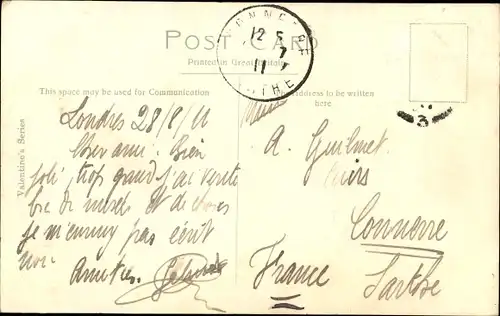 POST CARD
Printed in Great Britain
This space may be used for Communication
Address to be written
here
Valentine's Series
12 5
7
11
THE
3
Londres 28/8/11
Cher ami. Bien
joli, trop grand j'ai
et de
je m'ennuy pas écrit
moi
Amitiés.
A. Guilmet
Connerre
Sarthe
France